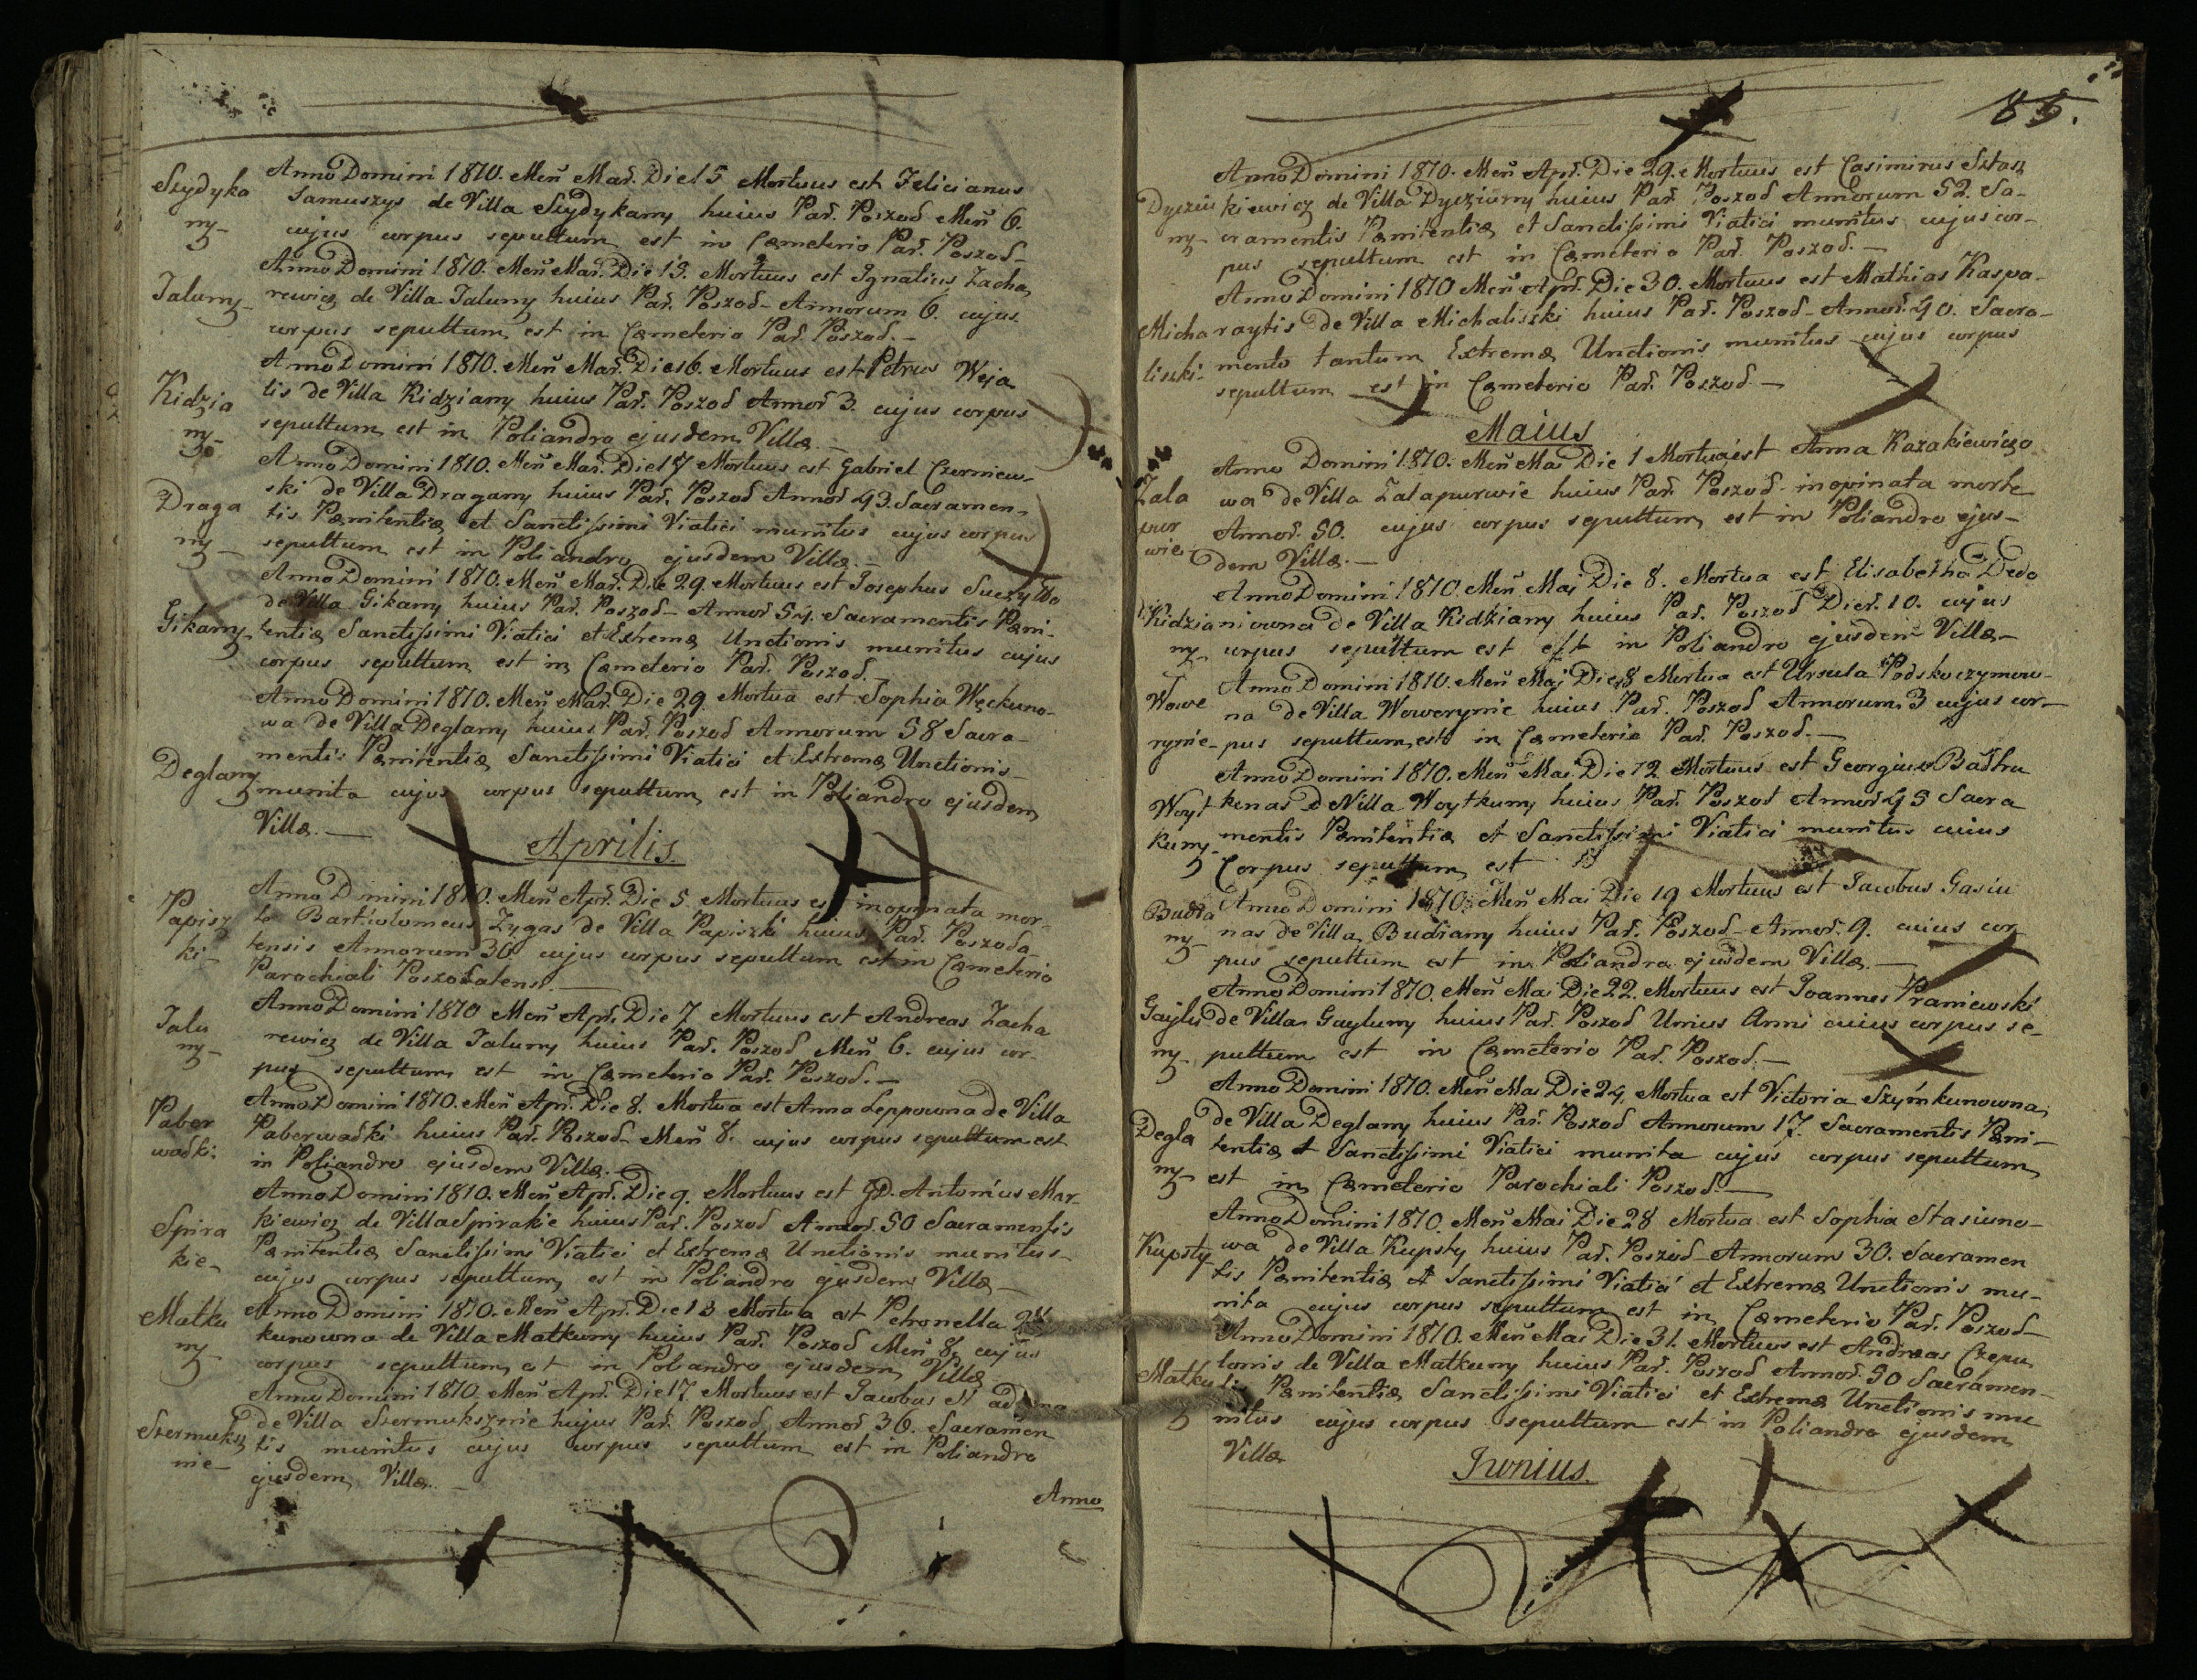 Szydyka
ny-
Anno Domini 1810. Meñ Mar̃. Die 15 Mortuus est Felicianus
Jamuszys de Villa Szydykany huius Par̃. Poszod Meñ 6.
cujus corpus sepultum est in Cæmeterio Par̃. Poszod-
Jaluny-
Anno Domini 1810. Meñ Mar̃. Die 13. Mortuus est Ignatius Zacha
rewicz de Villa Jaluny huius Par̃. Poszod- Annorum 6. cujus
corpus sepultum est in Cæmeterio Par̃. Poszod.-
Kidzia
ny-
Anno Domini 1810. Meñ Mar̃. Die 16. Mortuus est Petrus Weja
lis de Villa Kidziany huius Par̃. Poszod Annor̃ 3. cujus corpus
sepultum est in Poliandro ejusdem Villæ.-
Draga
ny-
Anno Domini 1810. Meñ Mar̃. Die 17 Mortuus est Gabriel Czerniew-
ski de Villa Dragany huius Par̃. Poszod Annor̃ 43. Sacramen-
tis Pænitentiæ et Sanctissimi Viatici munitus cujus corpus
sepultum est in Poliandro ejusdem Villæ.-
Gikany-
Anno Domini 1810. Meñ Mar̃. Die 29. Mortuus est Josephus Suczyłło
de Villa Gikany huius Par̃. Poszod- Annor̃ 54. Sacramentis Pæni-
tentiæ Sanctissimi Viatici et Extremæ Unctionis munitus cujus
corpus sepultum est in Cæmeterio Par̃. Poszod.
Deglany
Anno Domini 1810. Meñ Mar̃. Die 29 Mortua est Sophia Węckuno-
wa de Villa Deglany huius Par̃. Poszod Annorum 58 Sacra-
mentis Pænitentiæ Sanctissimi Viatici et Extremæ Unctionis
munita cujus corpus sepultum est in Poliandro ejusdem
Villæ.-
Aprilis.
Papisz
ki-
Anno Dmini 1810. Meñ Apr̃. Die 5. Mortuus est inopinata mor-
te Bartholomeus Zygas de Villa Papiszki huius Par̃. Poszoda
tensis Annorum 30 cujus corpus sepultum est in Cæmeterio
Parochiali Poszodatensi.-
Jalu
ny-
Anno Domini 1810 Meñ Apr̃. Die 7 Mortuus est Andreas Zacha
rewicz de Villa Jaluny huius Par̃. Poszod Meñ 6. cujus cor-
pus sepultum est in Cæmeterio Par̃. Poszod.-
Paber
wadki-
Anno Domini 1810. Meñ Apr̃. Die 8. Mortua est Anna Leppowna de Villa
Paberwadki huius Par̃. Poszod- Meñ 8. cujus corpus sepultum est
in Poliandro ejusdem Villæ.-
Spira
kie-
Anno Domini 1810. Meñ Apr̃. Die 9. Mortuus est GD. Antonius Mar
kiewicz de Villa Spirakie huius Par̃. Poszod Annor̃. 50 Sacramentis
Pænitentiæ Sanctissimi Viatici et Extremæ Unctionis munitus-
cujus corpus sepultum est in Poliandro ejusdem Villæ-
Matku
ny-
Anno Domini 1810. Meñ Apr̃. Die 13 Mortua est Petronella
kunowna de Villa Matkuny huius Par̃. Poszod Meñ 8. cujus
corpus sepultum est in Poliandro ejusdem Villæ
Szermuksz
nie-
Anno Domini 1810. Meñ Apr̃. Die 17 Mortuus est Jacobus
de Villa Szermuksznie hujus Par̃. Poszod Annor̃ 36. Sacramen
tis munitus cujus corpus sepultum est in Poliandro
ejusdem Villæ.-
Anno
85.
Dyrziu
ny-
Anno Domini 1810. Meñ Apr̃. Die 29. Mortuus est Casimirus Sztasz
kiewicz de Villa Dyrziuny huius Par̃. Poszod Annorum 52. Sa-
cramentis Pænitentiæ et Sanctissimi Viatici munitus cujus cor-
pus sepultum est in Cæmeterio Par̃. Poszod.-
Micha
liszki-
Anno Domini 1810 Meñ Apr̃. Die 30. Mortuus est Mathias Kaspa-
raytis de Villa Michaliszki huius Par̃. Poszod- Annor̃. 40. Sacra-
mento tantum Extremæ Unctionis munitus cujus corpus
sepultum est in Cæmeterio Par̃. Poszod-
Maius
Zala
pur
wie-
Anno Domini 1810. Meñ Mai Die 1 Mortua est Anna Kazakiewiczo
wa de Villa Zalapurwie huius Par̃. Poszod- inopinata morte
Annor̃. 50. cujus corpus sepultum est in Poliandro ejus-
dem Villæ.-
Kidzia
ny-
Anno Domini 1810. Meñ Maj Die 8. Mortua est Elisabetha Dedo
niowna de Villa Kidziany huius Par̃. Poszod Dier̃. 10. cujus
corpus sepultum est est in Poliandro ejusdem Villæ-
Wowe
rynie-
Anno Domini 1810. Meñ Maj Die 8 Mortua est Ursula Podskoczymow-
na de Villa Wowerynie huius Par̃. Poszod Annorum 3 cujus cor-
pus sepultum est in Cæmeterio Par̃. Poszod.-
Woyt
kuny-
Anno Domini 1810. Meñ Mai. Die 12 Mortuus est Georgius Bastru
kenas de Villa Woytkuny huius Par̃. Poszod Annor̃ 45 Sacra
mentis Pænitentiæ et Sanctissimi Viatici munitus cuius
Corpus sepultum est
Budra
ny-
Anno Domini 1810. Meñ Mai Die 19 Mortuus est Jacobus Gasiu
nas de Villa Budrany huius Par̃. Poszod- Annor̃. 9. cuius cor
pus sepultum est in Poliandro ejusdem Villæ.-
Gaylu
ny-
Anno Domini 1810. Meñ Mai Die 22. Mortuus est Joannes Praniewski
de Villa Gayluny huius Par̃. Poszod Unius Anni cuius corpus se-
pultum est in Cæmeterio Par̃. Poszod.-
Degla
ny-
Anno Domini 1810. Meñ Mai Die 24, Mortua est Victoria Szymkunowna,
de Villa Deglany huius Par̃. Poszod Annorum 17. Sacramentis Pæni-
tentiæ et Sanctissimi Viatici munita cujus corpus sepultum
est in Cæmeterio Parochiali Poszod.-
Kupsty
Anno Domini 1810 Meñ Mai Die 28 Mortua est Sophia Stasiuno-
wa de Villa Kupsty huius Par̃. Poszod Annorum 30. Sacramen
tis Pænitentiæ et Sanctissimi Viatici et Extremæ Unctionis mu-
nita cujus corpus sepultum est in Cæmeterio Par̃. Poszod-
Matku
Anno Domini 1810. Meñ Mai Die 31. Mortuus est Andreas Czepu
lonis de Villa Matkuny huius Par̃. Poszod Annor̃. 50 Sacramen-
tis Pænitentiæ Sanctissimi Viatici et Extremæ Unctionis mu
nitus cujus corpus sepultum est in Poliandro ejusdem
Villæ
Junius.